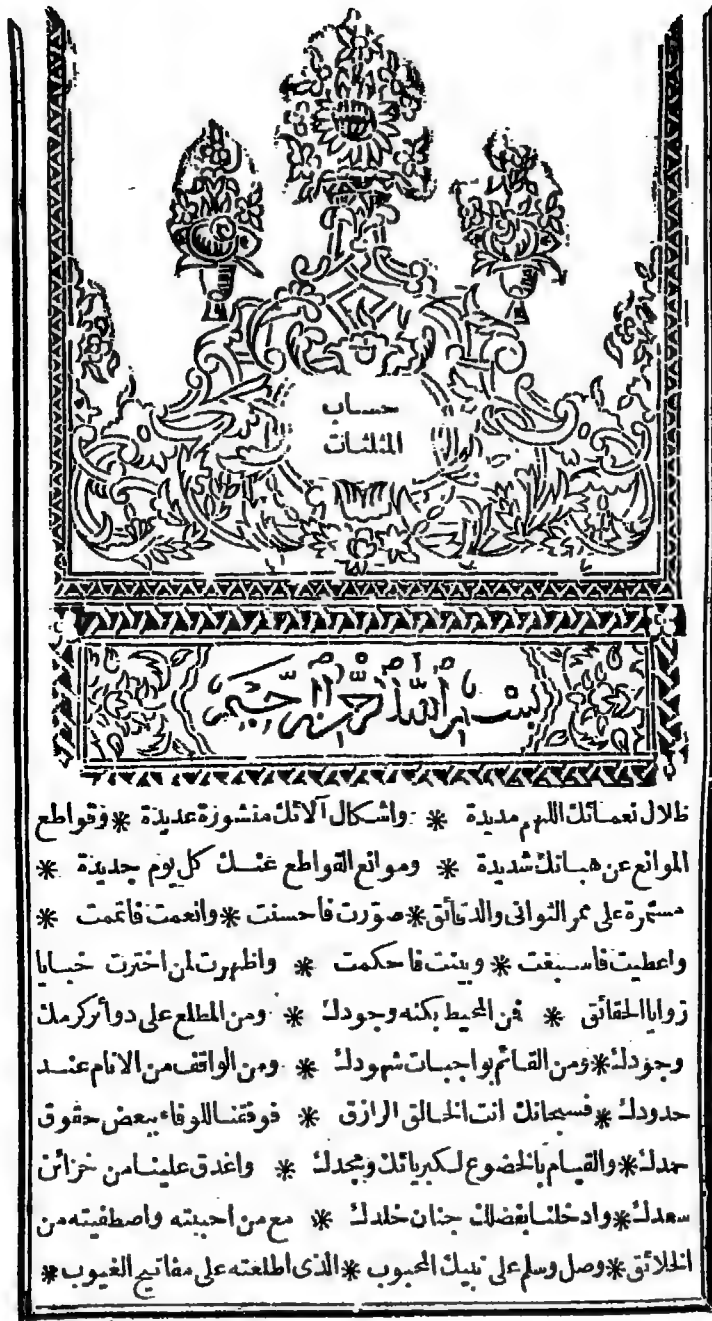 حساب
المثلثات
بسم الله الرحمن الرحيم
ظلال نعمائك اللهم مديدة * واشكال آلائك منشورة عديدة * وقواطع
الموانع عن هباتك شديدة * وموانع القواطع عنك كل يوم جديدة *
مستمرة على ممر الثوانى والدقائق * صورت فاحسنت * وانعمت فاتممت *
واعطيت فاسبغت * وبينت فاحكمت * واظهرت لمن اخترت خبايا
زوايا الحقائق * فمن المحيط بكنه وجودك * ومن المطلع على دوائر كرمك
وجودك * ومن القائم بواجبات شهودك * ومن الواقف من الانام عند
حدودك * فسبحانك انت الخالق الرازق * فوفقنا للوفاء ببعض حقوق
حمدك * والقيام بالخضوع لكبريائك ومجدك * واغدق علينا من خزائن
سعدك * وادخلنا بفضلك جنان خلدك * مع من احببته واصطفيته من
الخلائق * وصل وسلم على نبيك المحبوب * الذى اطلعته على مفاتيح الغيوب *